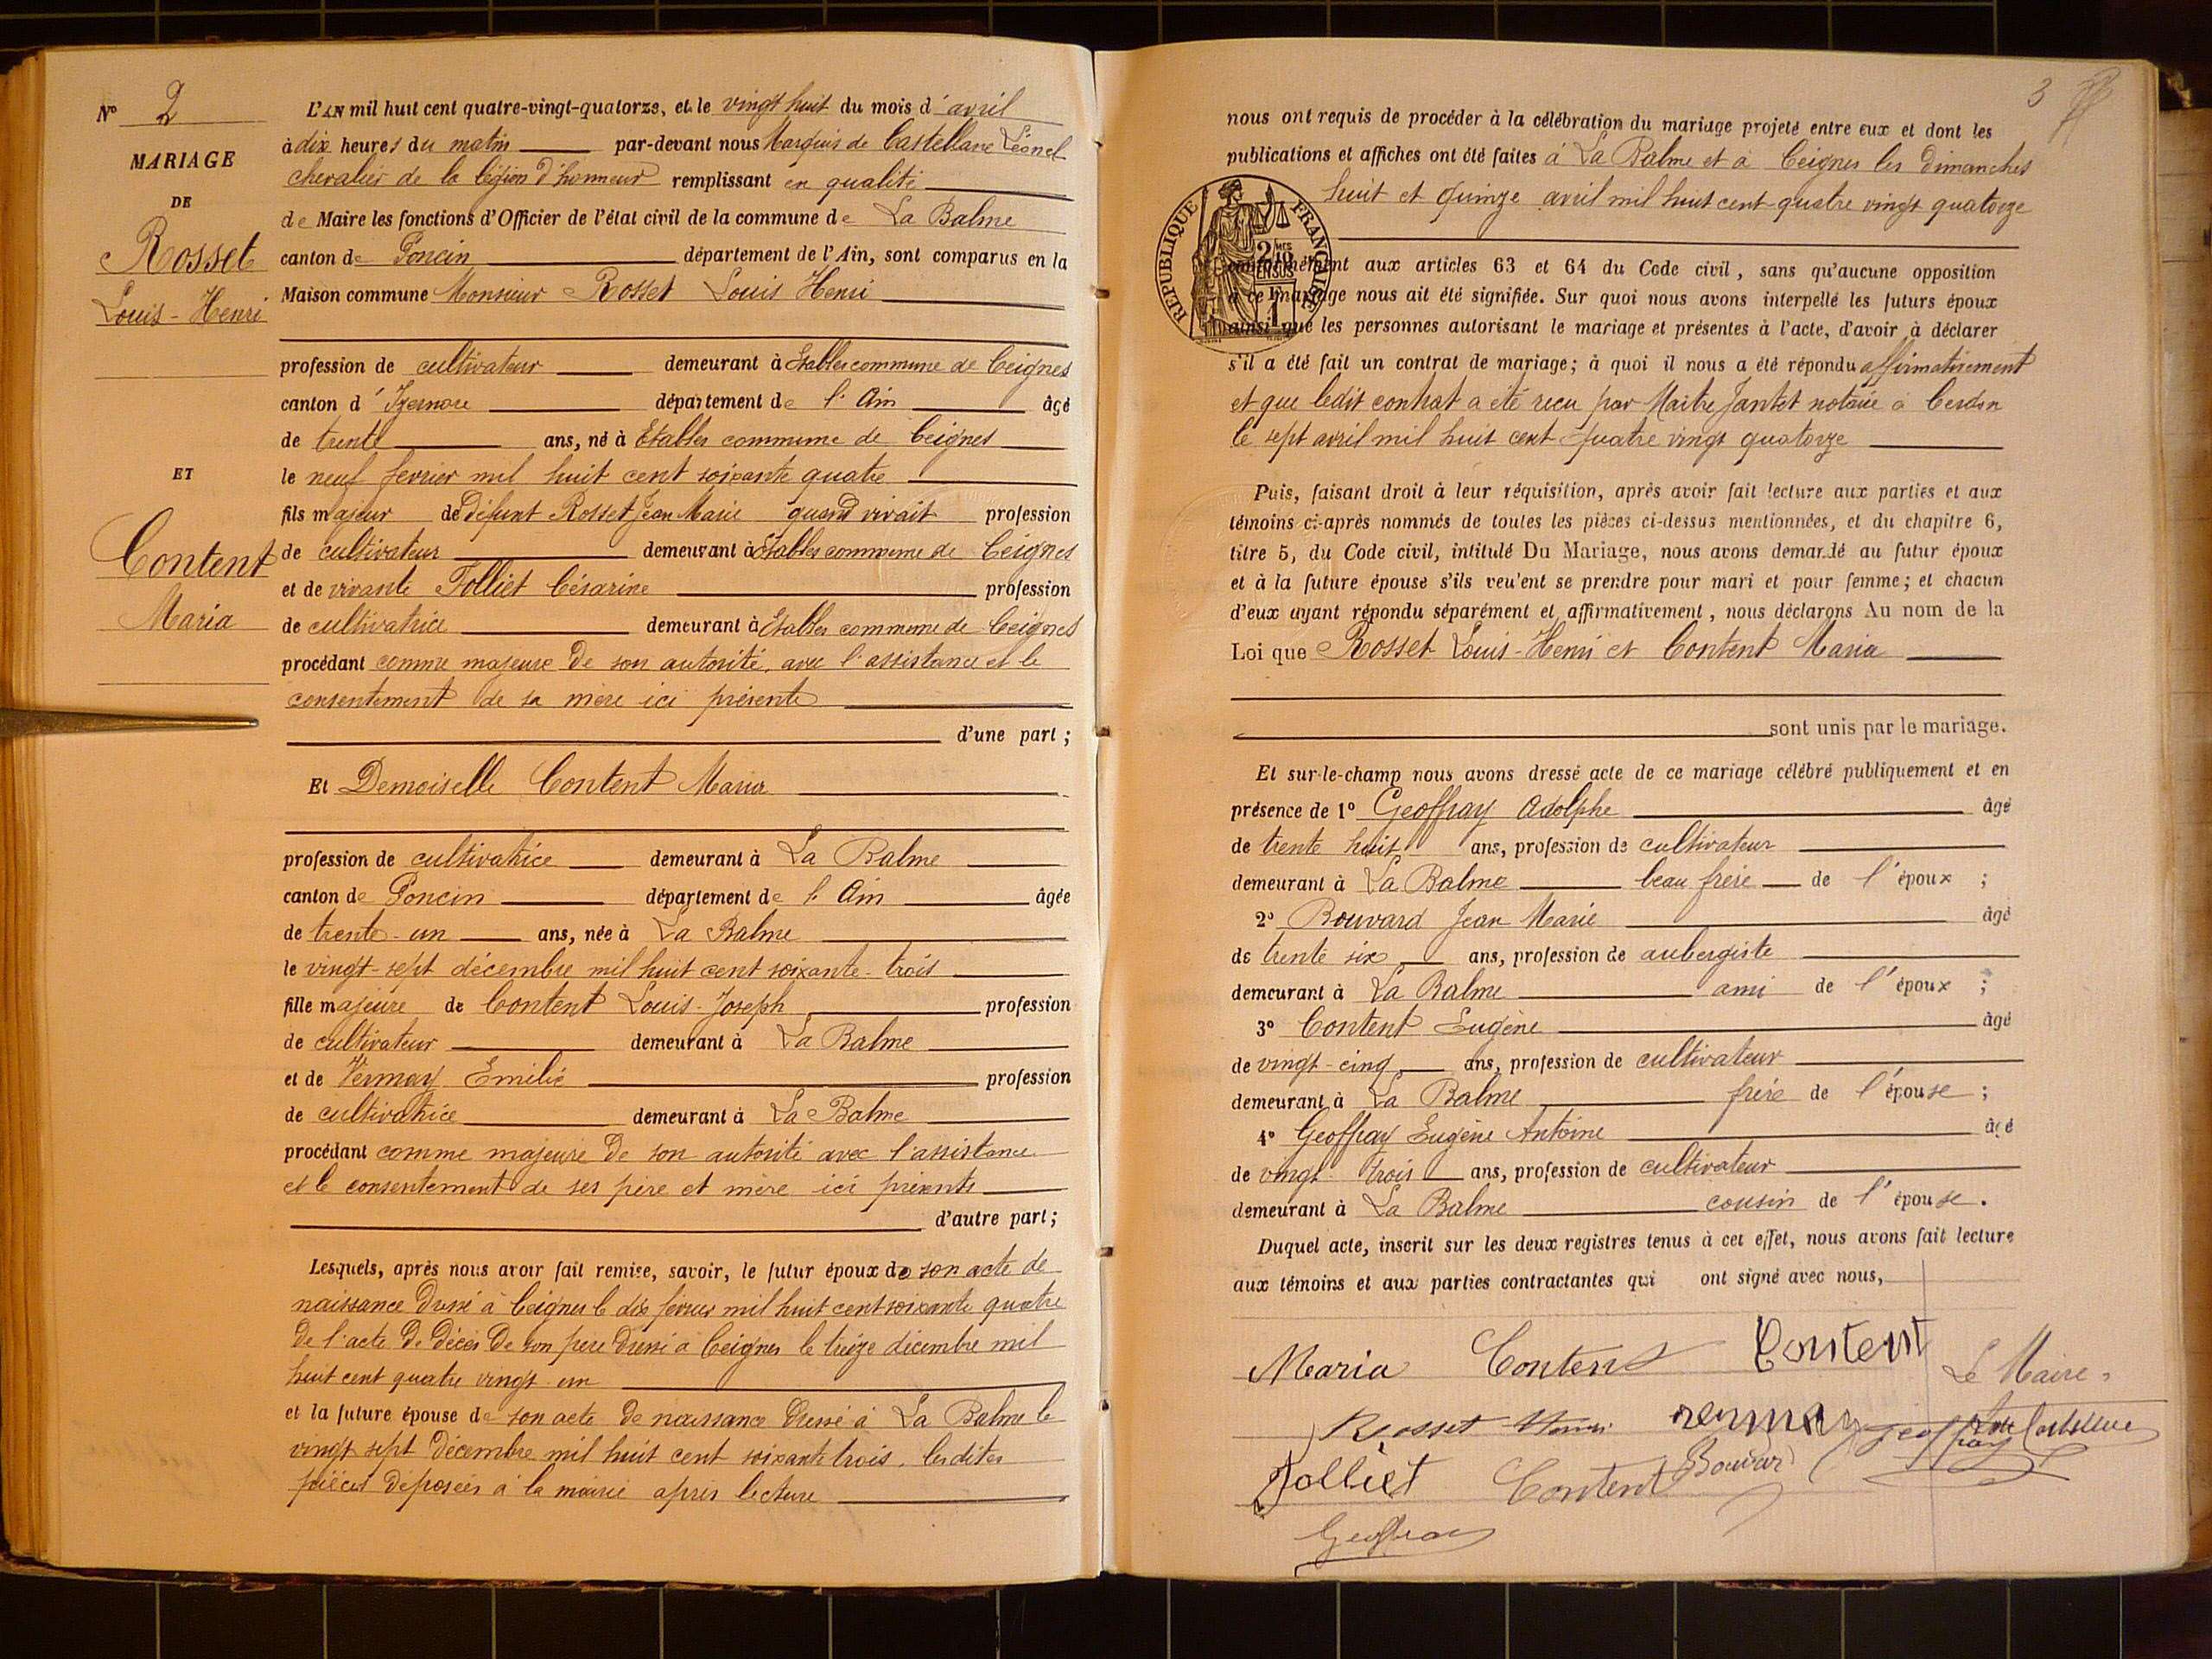 N° 2
MARIAGE
DE
Rosset
Louis-Henri
ET
Content
Maria
L'AN mil huit cent quatre-vingt-quatorze, et le vingt huit du mois d'avril
à dix heures du matin par-devant nous Marquis de Castellane Léonel
chevalier de la légion d'honneur remplissant en qualité
de Maire les fonctions d'Officier de l'état civil de la commune de La Balme
canton de Poncin département de l'Ain, sont comparus en la
Maison commune Monsieur Rosset Louis Henri
profession de cultivateur demeurant à Etables commune de Ceignes
canton d'Izernore département de l'Ain âgé
de trente ans, né à Etables commune de Ceignes
le neuf fevrier mil huit cent soixante quatre
fils majeur de défunt Rosset Jean Marie quand vivait profession
de cultivateur demeurant à Etables commune de Ceignes
et de vivante Folliet Césarine profession
de cultivatrice demeurant à Etables commune de Ceignes
procédant comme majeure de son autorité, avec l'assistance et le
consentement de sa mère ici présente
d'une part ;
Et Demoiselle Content Maria
profession de cultivatrice demeurant à La Balme
canton de Poncin département de l'Ain âgée
de trente-un ans, née à La Balme
le vingt-sept décembre mil huit cent soixante-trois
fille majeure de Content Louis-Joseph profession
de cultivateur demeurant à La Balme
et de Vermay Emilie profession
de cultivatrice demeurant à La Balme
procédant comme majeure de son autorité avec l'assistance
et le consentement de ses père et mère ici présents
d'autre part ;
Lesquels, après nous avoir fait remise, savoir, le futur époux de son acte de
naissance dressé à Ceignes le dix fevrier mil huit cent soixante quatre
de l'acte de décès de son père dressé à Ceignes le treize décembre mil
huit cent quatre vingt-un
et la future épouse de son acte de naissance dressé à La Balme le
vingt sept décembre mil huit cent soixante trois. les dites
pièces déposées à la mairie apres lecture
3
nous ont requis de procéder à la célébration du mariage projeté entre eux et dont les
publications et affiches ont été faites à La Balme et à Ceignes les dimanches
huit et quinze avril mil huit cent quatre vingt quatorze
REPUBLIQUE FRANÇAISE
conformément aux articles 63 et 64 du Code civil, sans qu'aucune opposition
à ce mariage nous ait été signifiée. Sur quoi nous avons interpellé les futurs époux
ainsi que les personnes autorisant le mariage et présentes à l'acte, d'avoir à déclarer
s'il a été fait un contrat de mariage ; à quoi il nous a été répondu affirmativement
et que ledit contrat a été reçu par Maître Jantet notaire à Cerdon
le sept avril mil huit cent quatre vingt quatorze
Puis, faisant droit à leur réquisition, après avoir fait lecture aux parties et aux
témoins ci-après nommés de toutes les pièces ci-dessus mentionnées, et du chapitre 6,
titre 5, du Code civil, intitulé Du Mariage, nous avons demandé au futur époux
et à la future épouse s'ils veulent se prendre pour mari et pour femme ; et chacun
d'eux ayant répondu séparément et affirmativement, nous déclarons Au nom de la
Loi que Rosset Louis-Henri et Content Maria
sont unis par le mariage.
Et sur-le-champ nous avons dressé acte de ce mariage célébré publiquement et en
présence de 1° Geoffray Adolphe âgé
de trente huit ans, profession de cultivateur
demeurant à La Balme beau frère de l'époux ;
2° Bouvard Jean Marie âgé
de trente six ans, profession de aubergiste
demeurant à La Balme ami de l'époux ;
3° Content Eugène âgé
de vingt-cinq ans, profession de cultivateur
demeurant à La Balme frère de l'épouse ;
4° Geoffray Eugène Antoine âgé
de vingt trois ans, profession de cultivateur
demeurant à La Balme cousin de l'épouse.
Duquel acte, inscrit sur les deux registres tenus à cet effet, nous avons fait lecture
aux témoins et aux parties contractantes qui ont signé avec nous,
Maria Content Content Le Maire,
Rosset Henri vermay geoffray Castellane
Folliet Content Bouvard
Geoffray